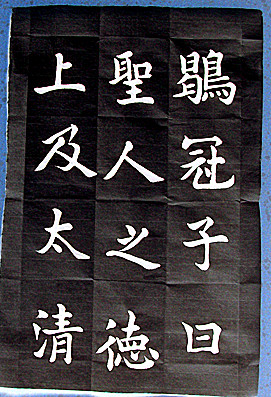 鶡冠子曰
聖人之徳
上及太清